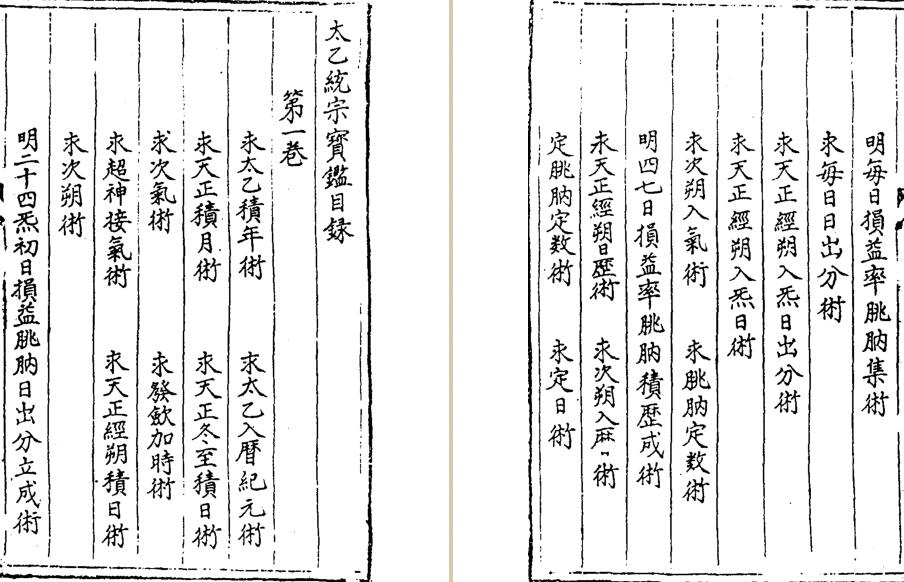 太乙統宗寶鑑目録
第一巻
求太乙積年術　求太乙入曆紀元術
求天正積月術　求天正冬至積日術
求次氣術　求發歛加時術
求超神接氣術　求天正經朔積日術
求次朔術
明二十四炁初日損益朓肭日出分立成術
明每日損益率朓肭集術
求每日日出分術
求天正經朔入炁日出分術
求天正經朔入炁日術
求次朔入氣術　求朓肭定数術
明四七日損益率朓肭積歷成術
求天正經朔日歷術　求次朔入麻〃術
定朓肭定数術　求定日術